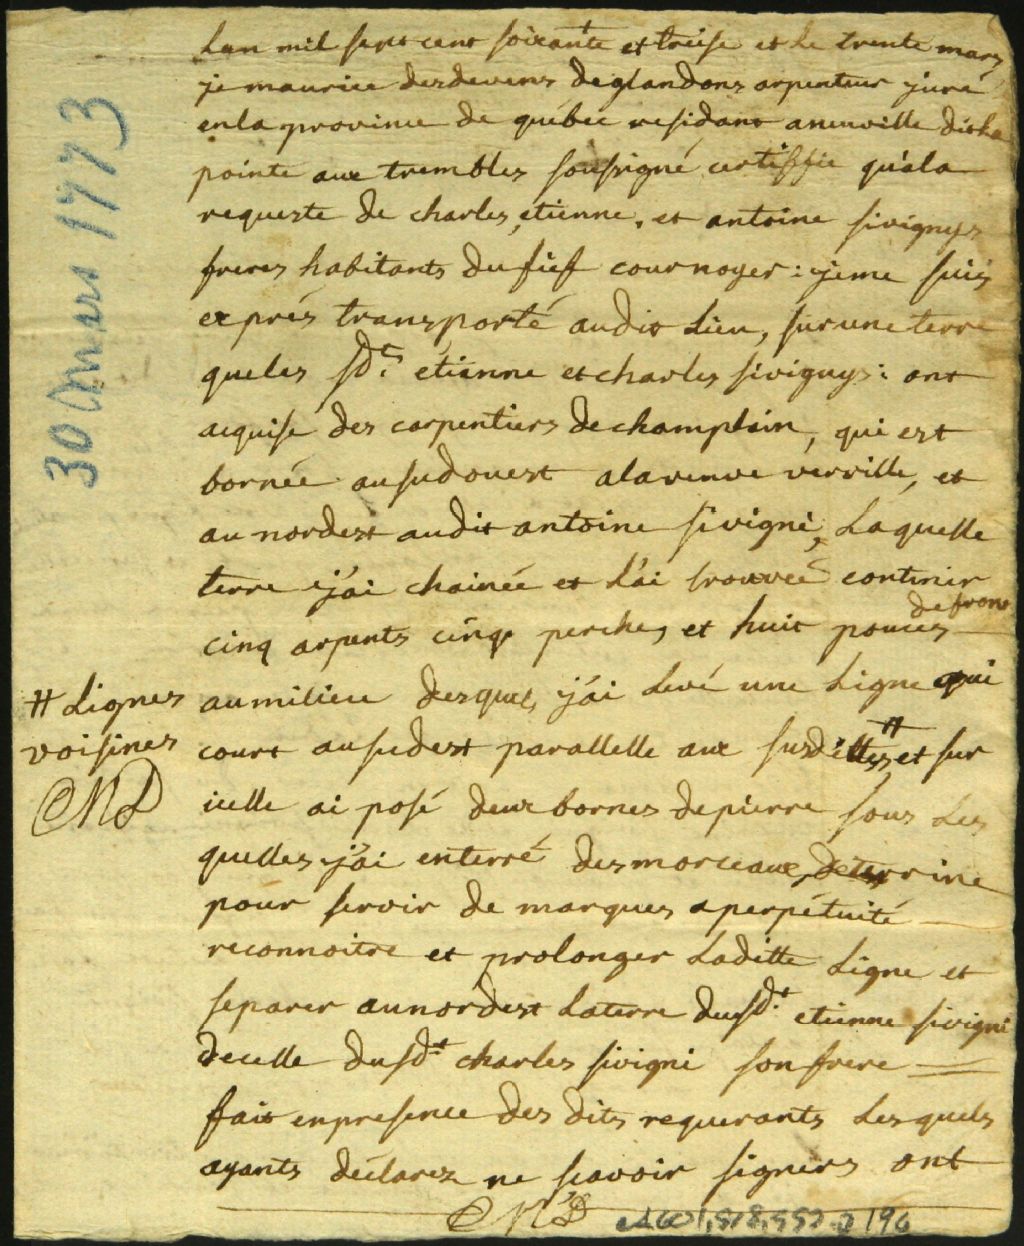 30 Mars 1773
Lan mil sept cent soixante et treise et le trente mars
je maurice desdevens deglandons arpenteur juré
en la province de québec residant aneuville dit la
pointe aux trembles soussigné certiffie qu'ala
requeste de charles, etienne, et antoine sivignys
freres habitants du fief cournoyer : je me suis
exprés transporté audit Lieu, sur une terre
que les sd.ts étienne et charles sivignys : ont
acquise des carpentiers de champlain, qui est
bornée au sud ouest a la veuve verville, et
au nordest audit antoine sivigni, Laquelle
terre j'ai chainée et L'ai trouvée contenir
cinq arpents cinq perches et huit pouces de front
au milieu desquels j'ai Levé une Ligne qui
court au sudest parallelle aux susdittes # et sur
# Lignes
voisines
MD
icelle ai posé deux bornes de pierre sous Les
quelles j'ai enterré des morceaux de terrine
pour servir de marques a perpétuité
reconnoitre et prolonger Laditte Ligne et
separer au nordest La terre du sd.t etienne sivigni
de celle du sd.t charles sivigni son frere
fait en presence des dits requerants Lesquels
ayants déclarez ne scavoir signers ont
MD